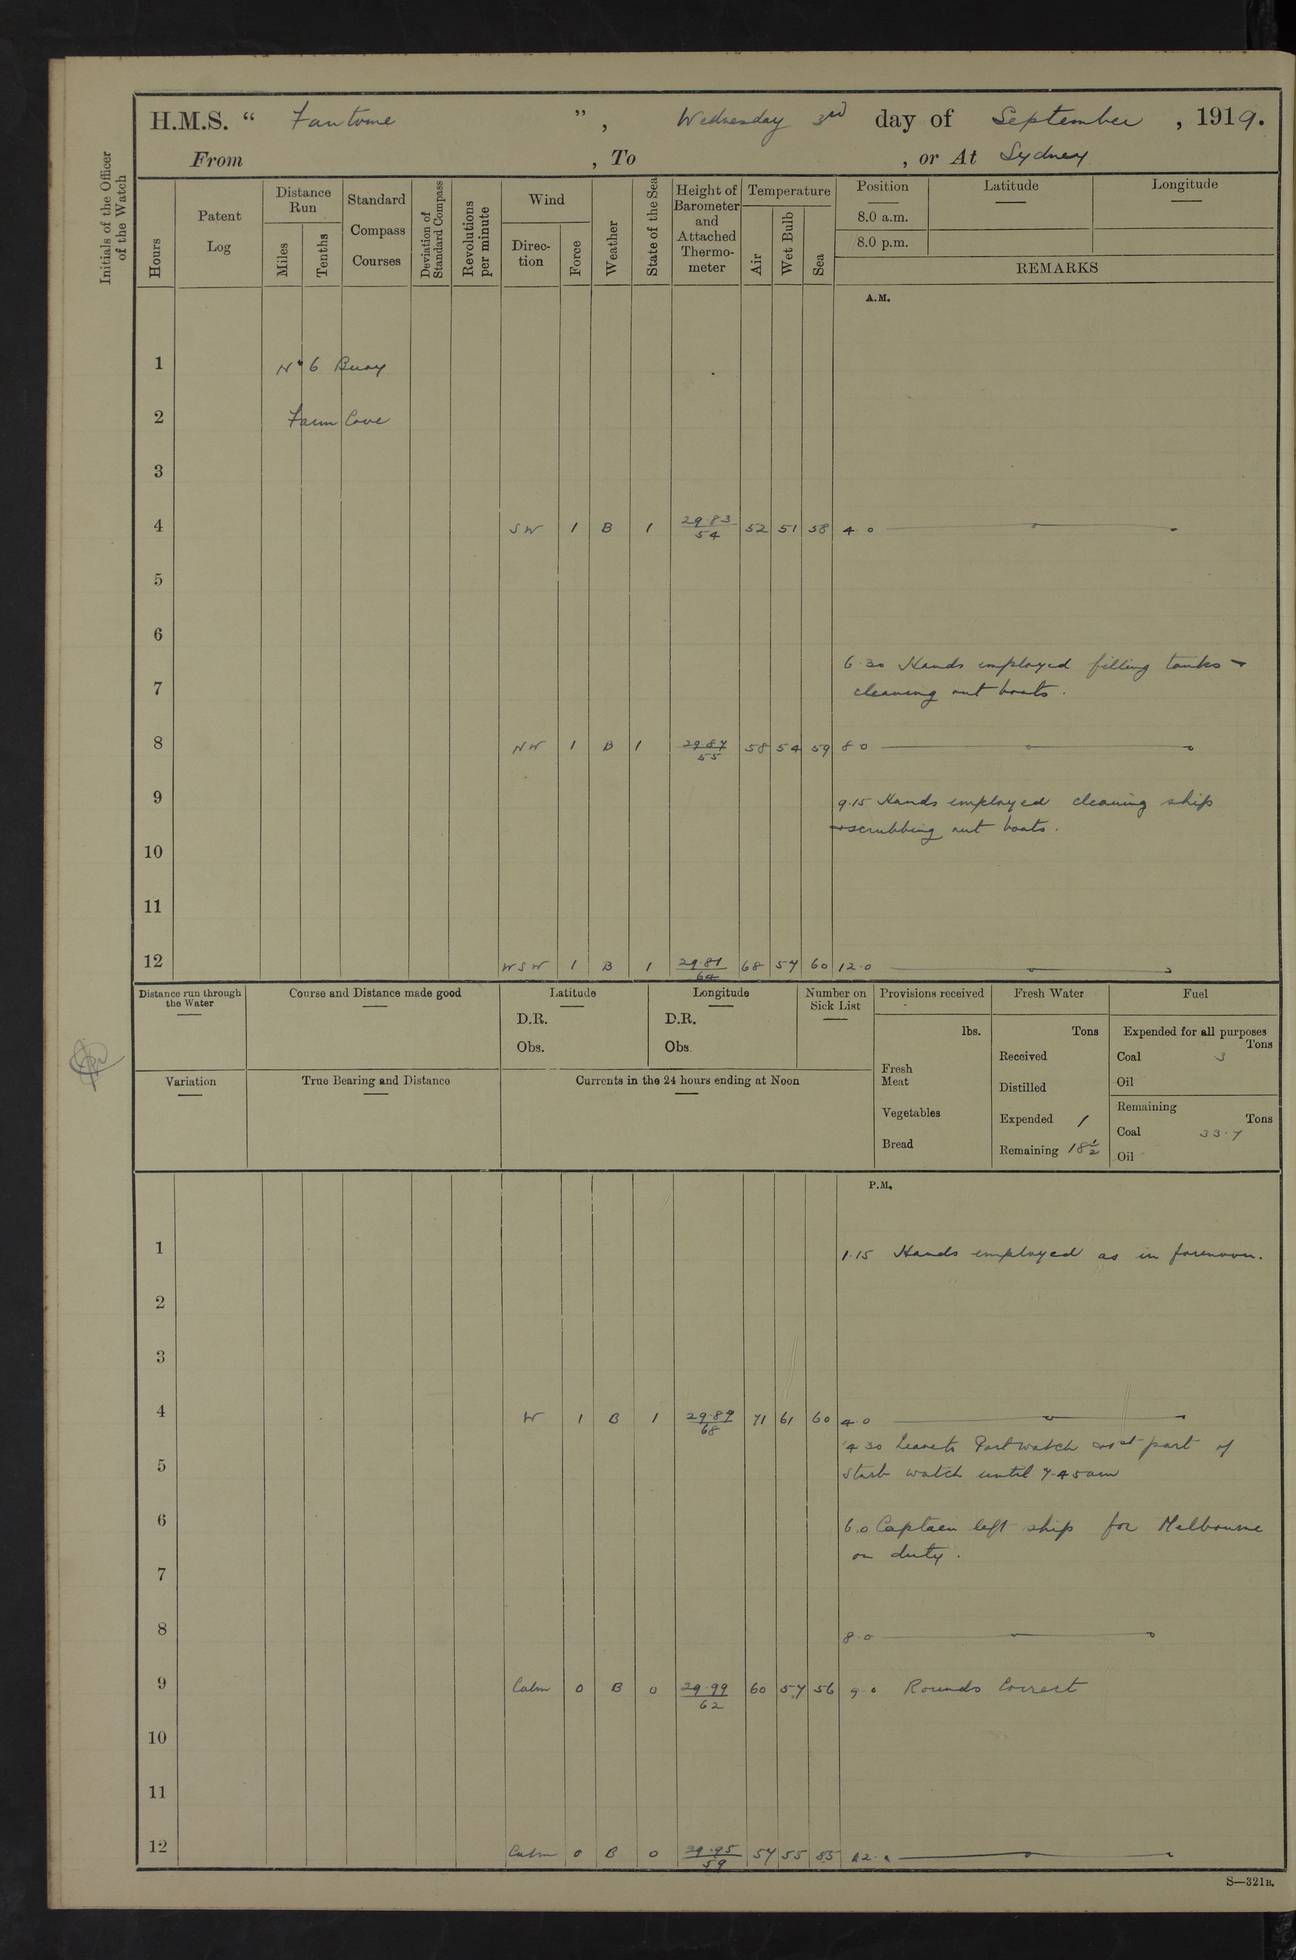 H.M.S. “ Fantome ” , Wednesday 3rd day of September , 1919.
From , To , or At Sydney
Initials of the Officer of the Watch
Hours
Patent Log
Distance Run
Miles
Tenths
Standard Compass Courses
Deviation of Standard Compass
Revolutions per minute
Wind
Direction
Force
Weather
State of the Sea
Height of Barometer and Attached Thermometer
Temperature
Air
Wet Bulb
Sea
Position Latitude Longitude
8.0 a.m.
8.0 p.m.
REMARKS
A.M.
1 No 6 Buoy
2 Farm Cove
3
4 SW 1 B 1 29.83/54 52 51 58 4 0
5
6
6.30 Hands employed filling tanks +
7 cleaning out boats.
8 NW 1 B 1 29.87/55 58 54 59 8 0
9 9.15 Hands employed cleaning ship
+ scrubbing out boats.
10
11
12 WSW 1 B 1 29.81/64 68 57 60 12.0
Distance run through the Water
Course and Distance made good
Latitude
D.R.
Obs.
Longitude
D.R.
Obs.
Number on Sick List
Provisions received
lbs.
Fresh Meat
Vegetables
Bread
Fresh Water
Tons
Received
Distilled
Expended 1
Remaining 18½
Fuel
Expended for all purposes
Tons
Coal 3
Oil
Remaining
Tons
Coal 33.7
Oil
Variation
True Bearing and Distance
Currents in the 24 hours ending at Noon
P.M.
1 1.15 Hands employed as in forenoon.
2
3
4 W 1 B 1 29.89/68 71 61 60 4 0
4 30 Leave to Port watch + 1st part of
5 Starb watch until 7.45am
6 6.0 Captain left ship for Melbourne
on duty.
7
8 8.0
9 Calm 0 B 0 29.99/62 60 57 56 9.0 Rounds Correct
10
11
12 Calm 0 B 0 29.95/59 57 55 55 12.0
S—321B.